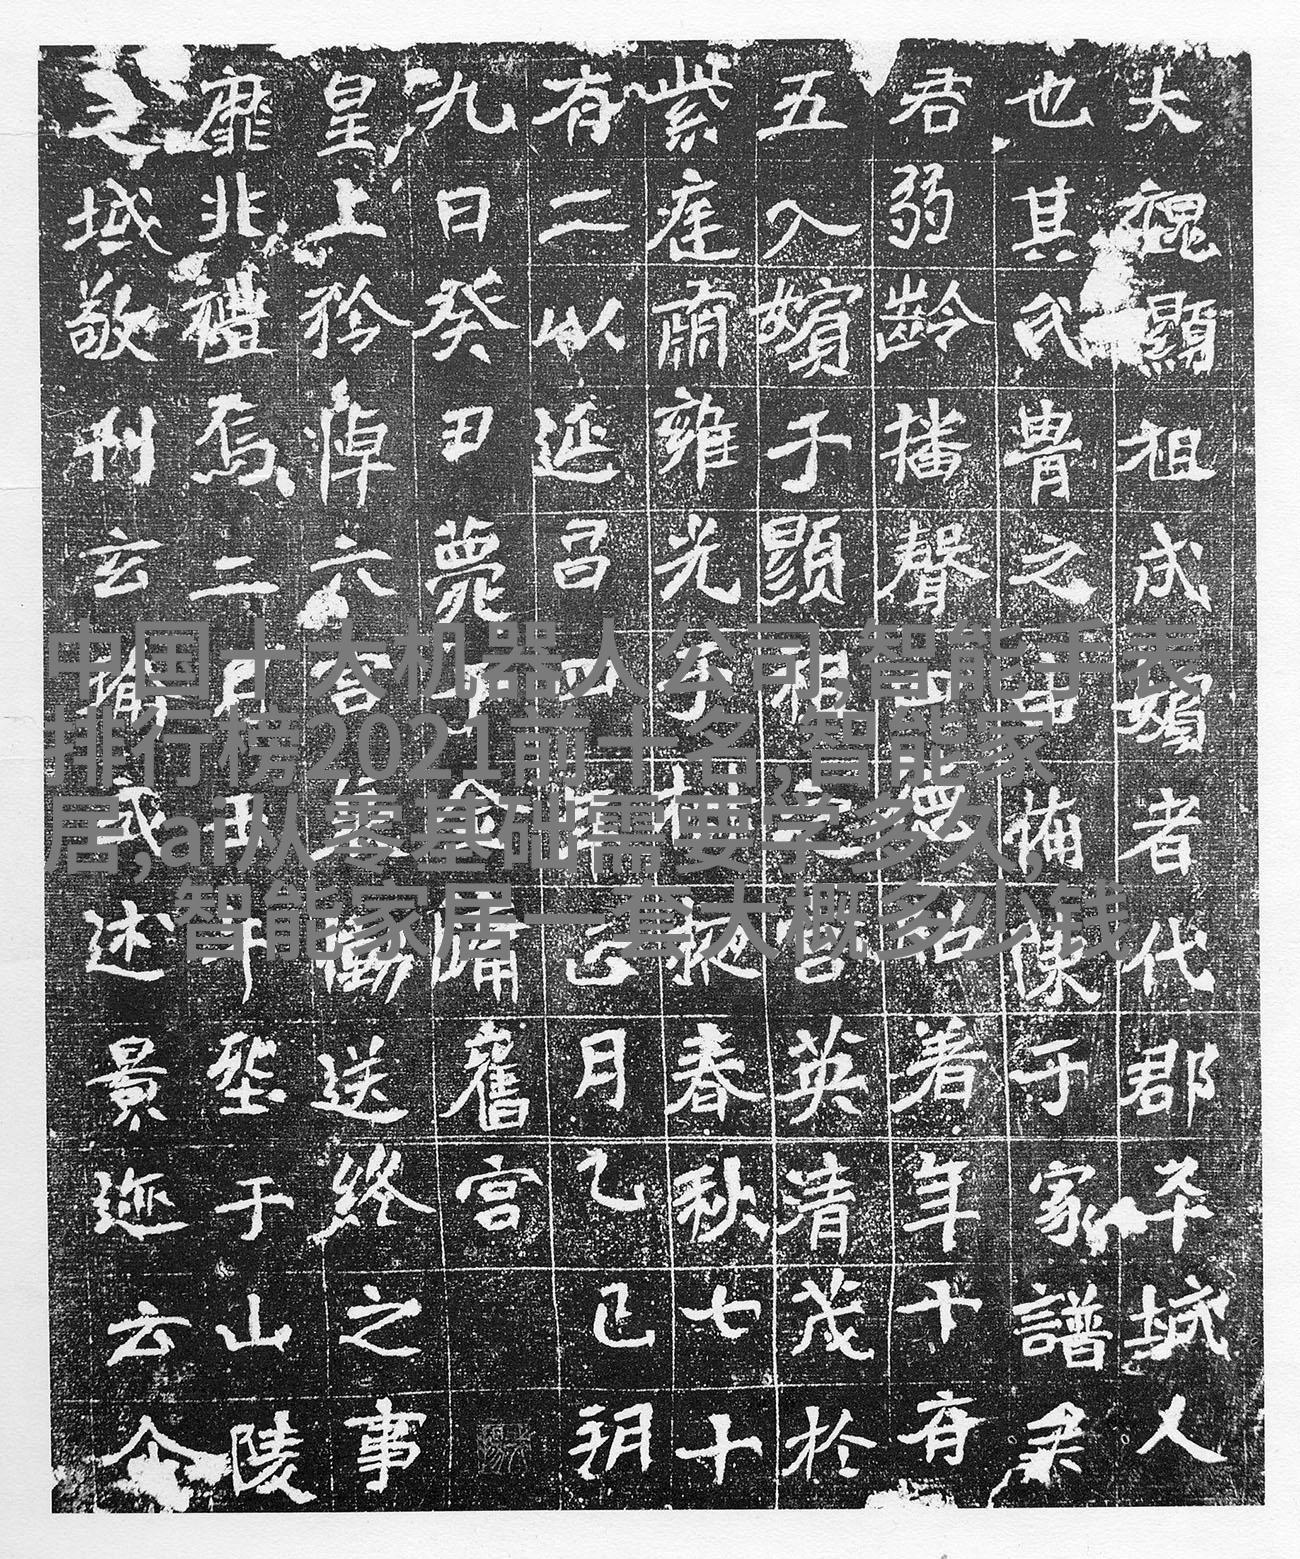 大魏顯祖成嬪者代郡平城人
也其氏胄之由備陳于家譜矣
君弱齡播聲德昭著年十有
五入嬪于顯祖之宮英清茂於
紫庭肅雍光于椒掖春秋七十
有二以延昌四年正月乙巳朔
九日癸丑薨于金墉舊宮
皇上矜悼六宮哀慟送終之事
靡非禮焉二月于山陵
之域敬刊玄式述景迹云
中国十大机器人公司,智能手表
排行榜2021前十名,智能家
居,ai从零基础需要学多久,
智能家居一套大概多少钱